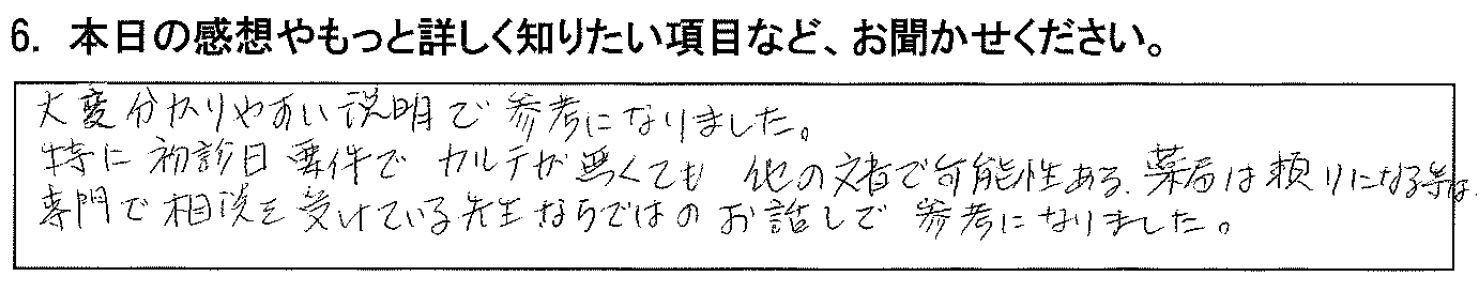 6. 本日の感想やもっと詳しく知りたい項目など、お聞かせください。
大変分かりやすい説明で参考になりました。
特に初診日要件でカルテが無くても他の文書で可能性ある、薬局は頼りになる等は、
専門で相談を受けている先生ならではのお話しで参考になりました。